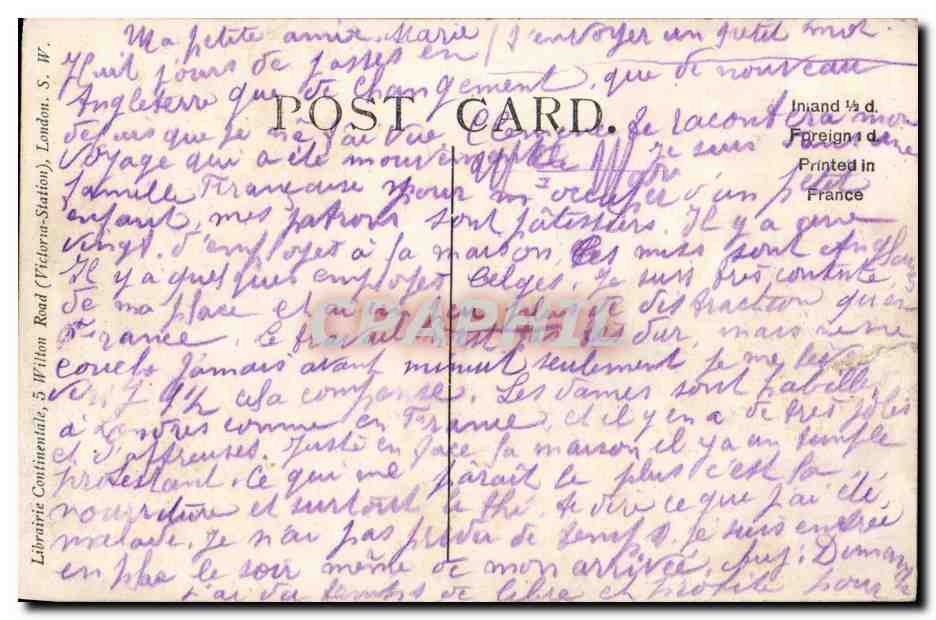 Ma petite amie Marie j'envoyer un petit mot.
Huit jours de passés en
Angleterre que de changement, que de nouveau
POST CARD.
Inland ½ d.
Foreign 1 d.
Printed in
France
depuis que je t'ai vue. Je racontera mon
voyage qui a été mouvementé. Je suis dans une
famille Française pour m'occuper d'un petit
enfant, mes patrons sont pâtissiers. Il y a
vingt d'employés à la maison, les miss sont Anglaises
Il y a quelques employés belges, je suis très contente
de ma place et de distraction qu'en
France, le travail est dur, mais je me
couche jamais avant minuit seulement je me lève
vers 9½ cela compense. Les dames sont habillées
à Londres comme en France, et il y en a de très jolies
et d'affreuses. Juste en face la maison il y a un temple
protestant. Ce qui me paraît le plus c'est la
nourriture et surtout le thé. te dire ce que j'ai été
malade. Je n'ai pas perdu de temps, je suis entrée
en place le soir même de mon arrivée,
j'ai du temps de libre et profite pour
Librairie Continentale, 5 Wilton Road (Victoria-Station), London. S. W.
CPAPHIL